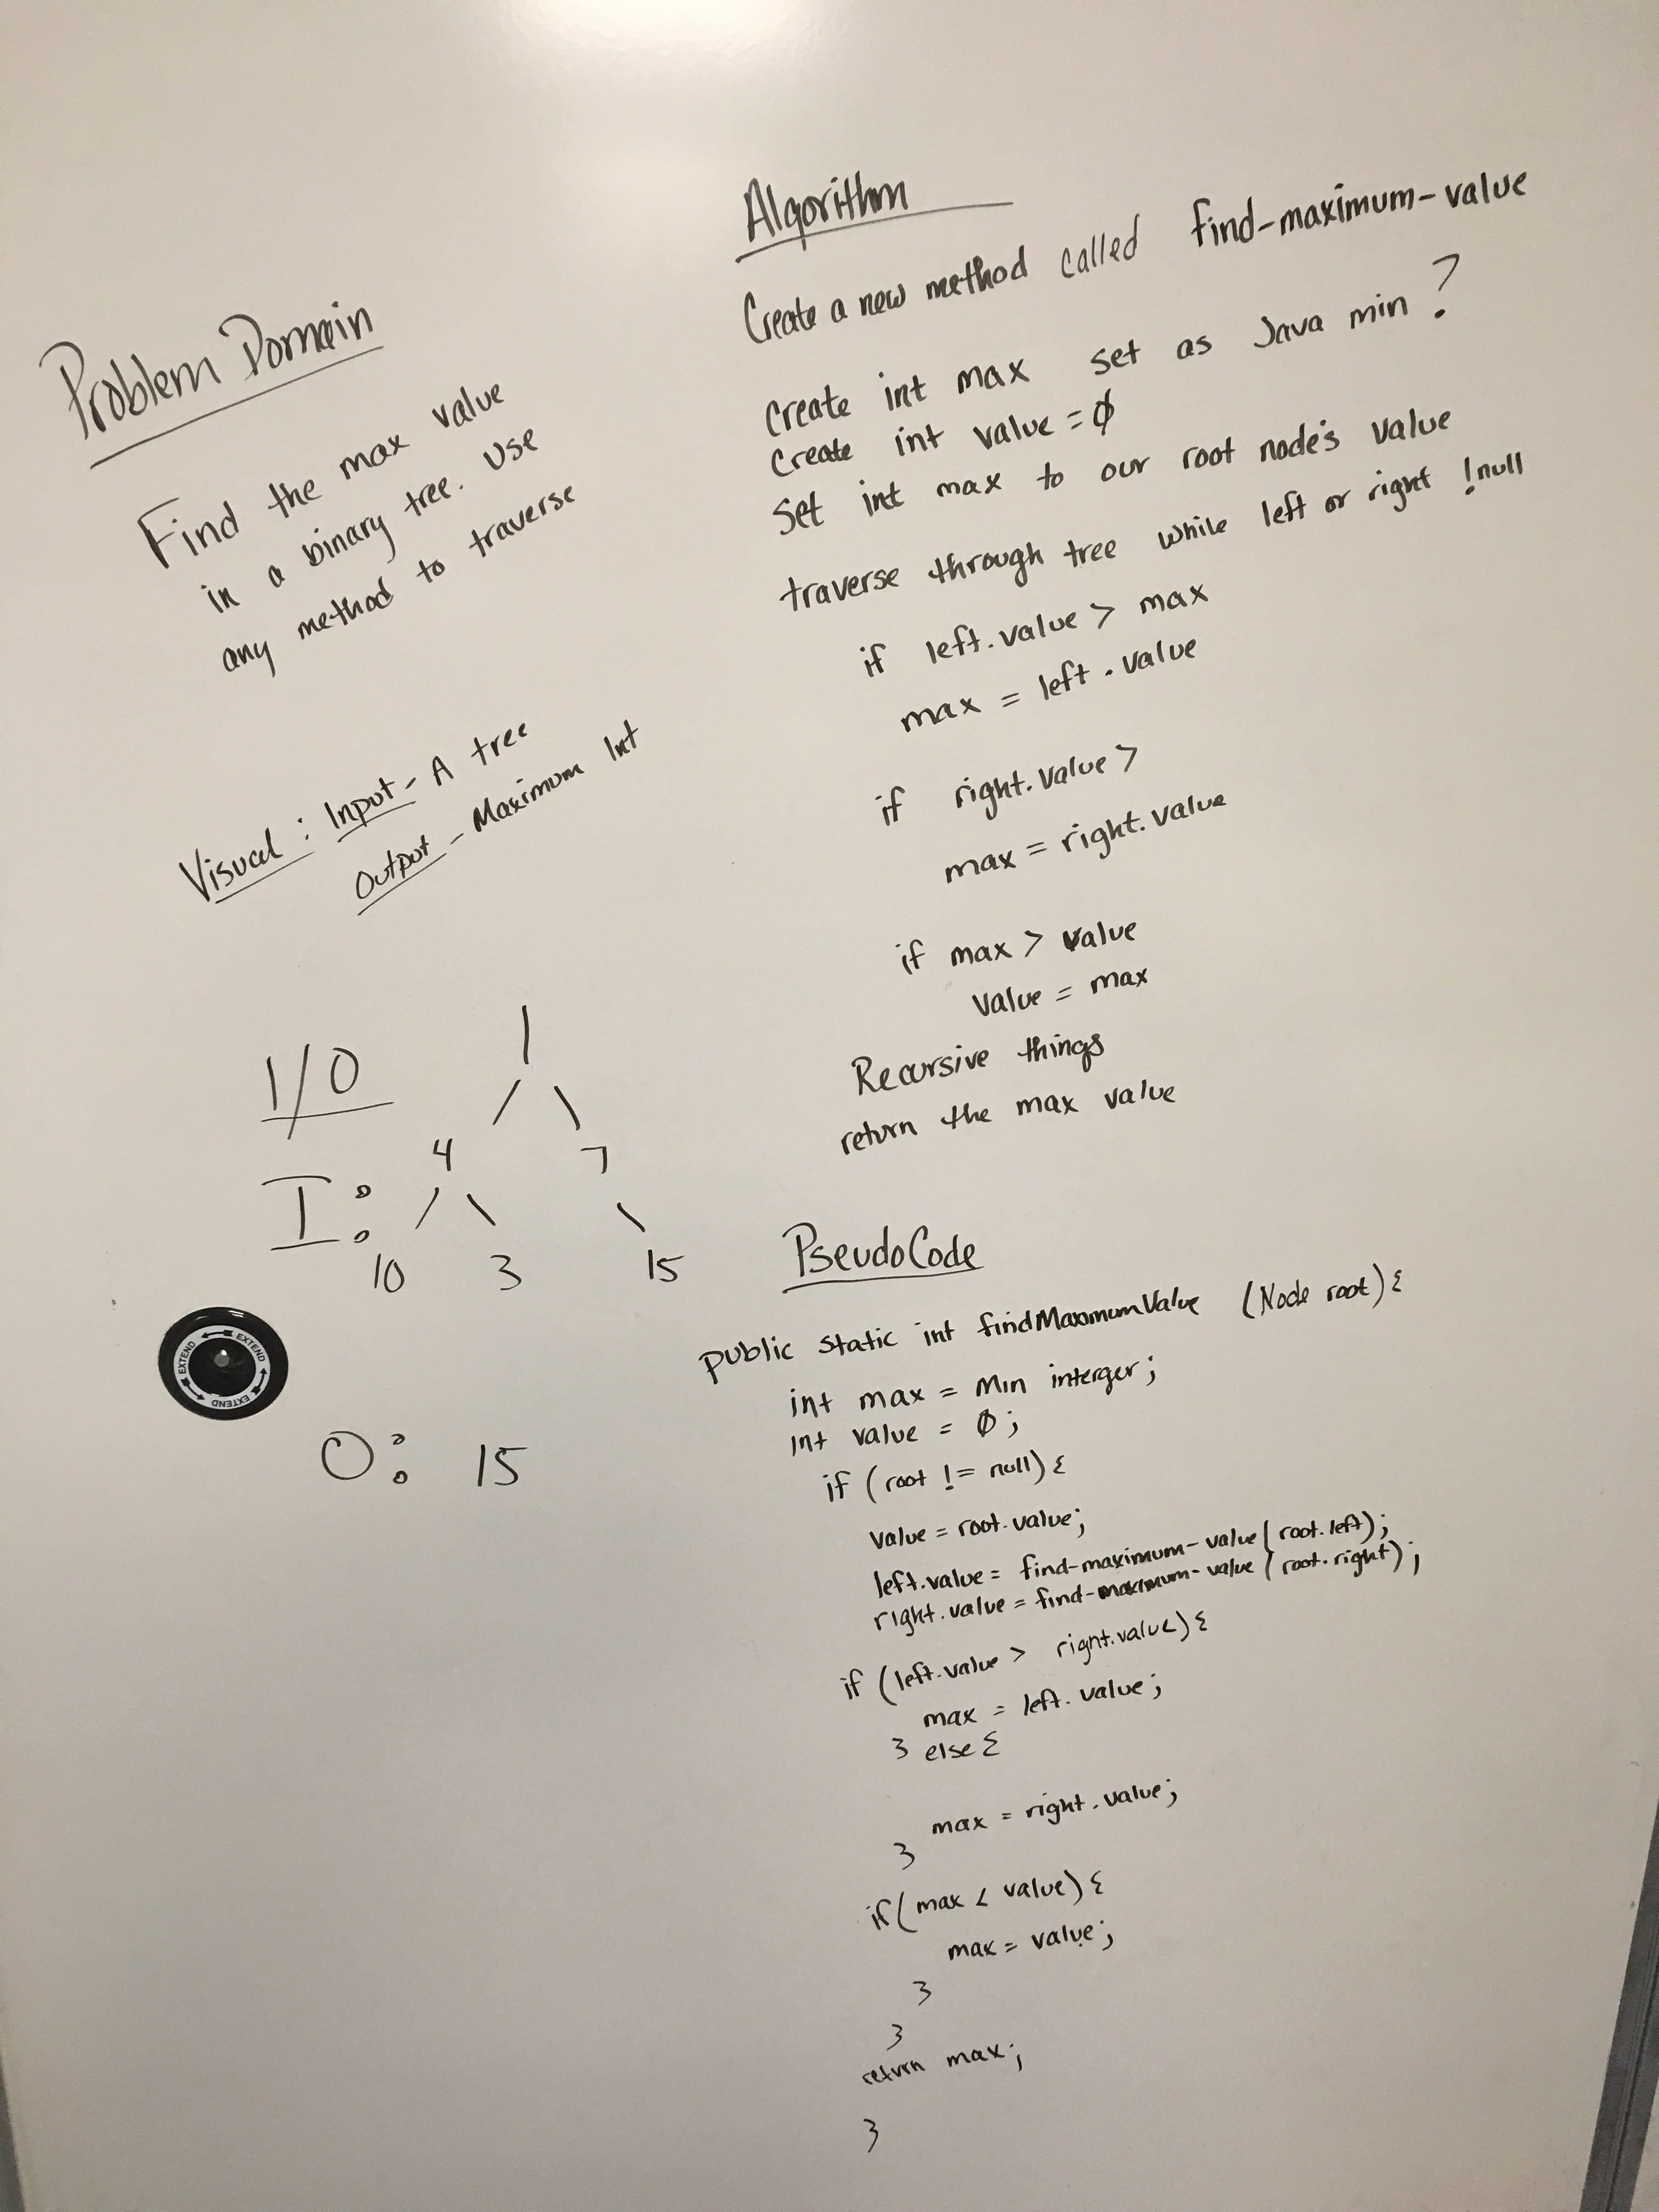 Problem Domain
Find the max value
in a binary tree. Use
any method to traverse
Visual: Input - A tree
Output - Maximum Int
I/O
1
4 7
I:
10 3 15
EXTEND EXTEND EXTEND EXTEND
O: 15
Algorithm
Create a new method called find-maximum-value
Create int max set as Java min?
Create int value = 0
Set int max to our root node's value
traverse through tree while left or right !null
if left.value > max
max = left.value
if right.value >
max = right.value
if max > value
value = max
Recursive things
return the max value
PseudoCode
public static int findMaximumValue (Node root) {
int max = Min interger;
int value = 0;
if (root != null) {
value = root.value;
left.value = find-maximum-value(root.left);
right.value = find-maximum-value(root.right);
if (left.value > right.value) {
max = left.value;
} else {
max = right.value;
}
if (max < value) {
max = value;
}
}
return max;
}